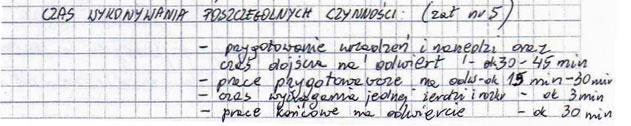 CZAS WYKONYWANIA POSZCZEGÓLNYCH CZYNNOŚCI: (zał nr 5)
- przygotowanie urządzeń i narzędzi oraz
czas dojścia na odwiert - ok 30 - 45 min
- prace przygotowawcze na odw - ok 15 min - 30 min
- czas wyciągania jednej żerdzi i rozkr - ok 3 min
- prace końcowe na odwiercie - ok 30 min